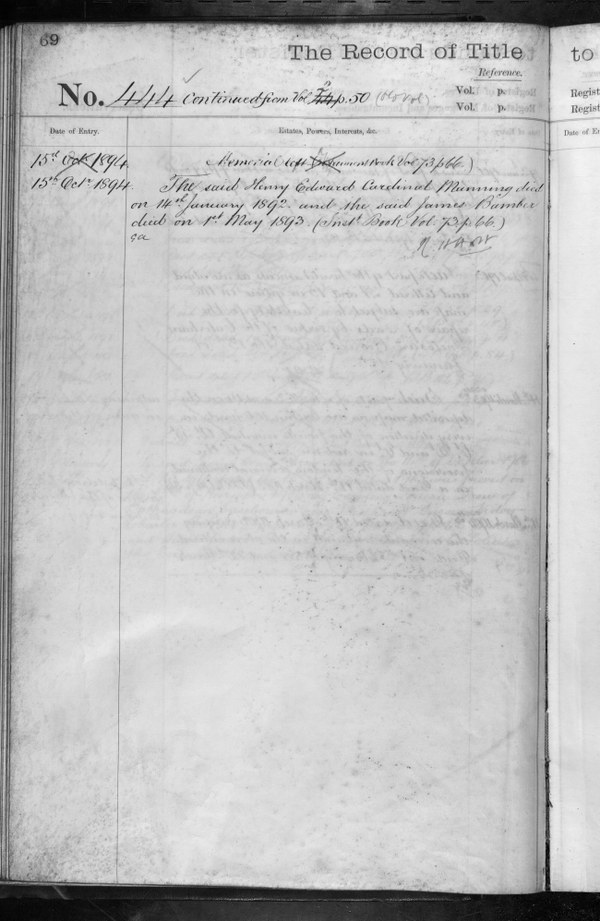 69
The Record of Title
Reference.
No. 444 Continued from Vol p. 50 (Old Vol)
Vol. p.
Vol. p.
Date of Entry. Estates, Powers, Interests, &c.
15th Oct 1894 Memorial Book Vol 73 p 66)
15th Octr 1894. The said Henry Edward Cardinal Manning died
on 14th January 1892. and the said James Bamber
died on 1st May 1893 (Instt Book Vol. 73 p. 66.)
to
Regist
Regist
Date of E